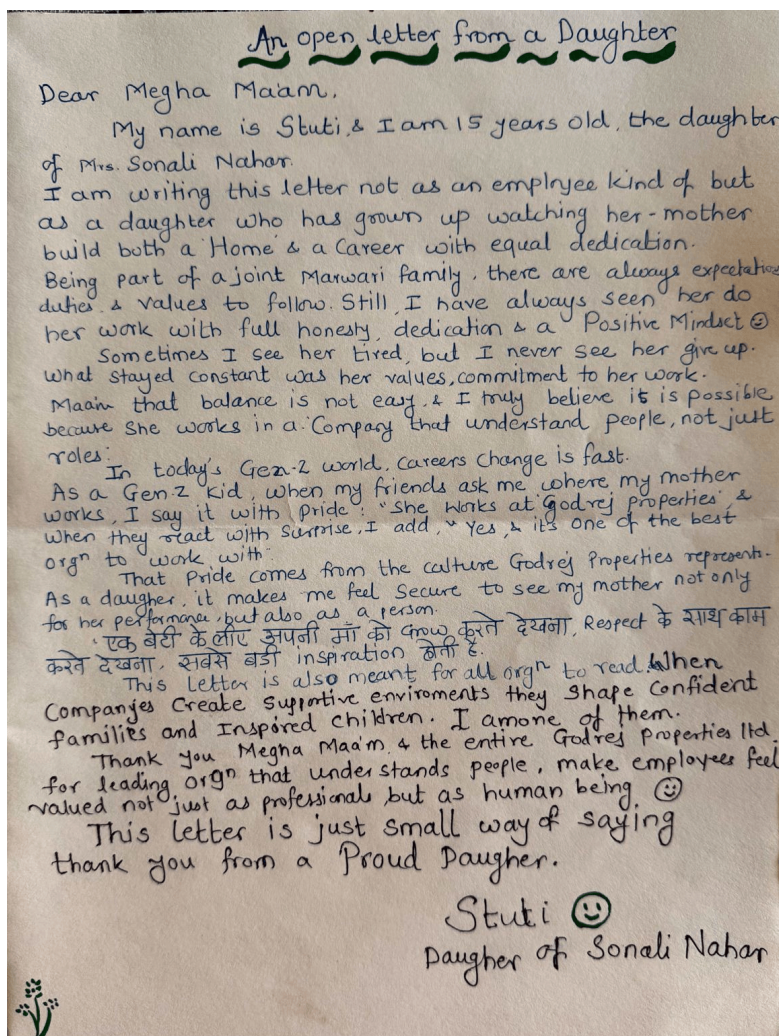 An open letter from a Daughter
Dear Megha Maam,
My name is Stuti, & I am 15 years old, the daughter
of Mrs. Sonali Nahar.
I am writing this letter not as an employee kind of but
as a daughter who has grown up watching her-mother
build both a Home & a Career with equal dedication.
Being part of a joint Marwari family, there are always expectations
duties, & values to follow. Still, I have always seen her do
her work with full honesty, dedication & a Positive Mindset ☺
Sometimes I see her tired, but I never see her give up.
What stayed constant was her values, commitment to her work.
Maam that balance is not easy, & I truly believe it is possible
because she works in a Company that understand people, not just
roles.
In today's Gen-Z world, careers change is fast.
As a Gen-Z kid, when my friends ask me where my mother
works, I say it with Pride : "She works at 'Godrej properties', &
when they react with surprise, I add, "Yes, & it's one of the best
orgn to work with."
That Pride comes from the culture Godrej Properties represents.
As a daugher, it makes me feel Secure to see my mother not only
for her performance, but also as a person.
"एक बेटी के लीए अपनी माँ को Grow करते देखना, Respect के साथ काम
करते देखना, सबसे बडी inspiration होती है.
This Letter is also meant for all orgn to read. When
Companies Create Supportive enviroments they Shape Confident
families and Inspired Children. I amone of them.
Thank you Megha Maa'm & the entire Godrej Properties ltd.
for leading orgn that understands people, make employees feel
valued not just as professionals but as human being ☺
This letter is just small way of saying
thank you from a Proud Daugher.
Stuti ☺
Daugher of Sonali Nahar